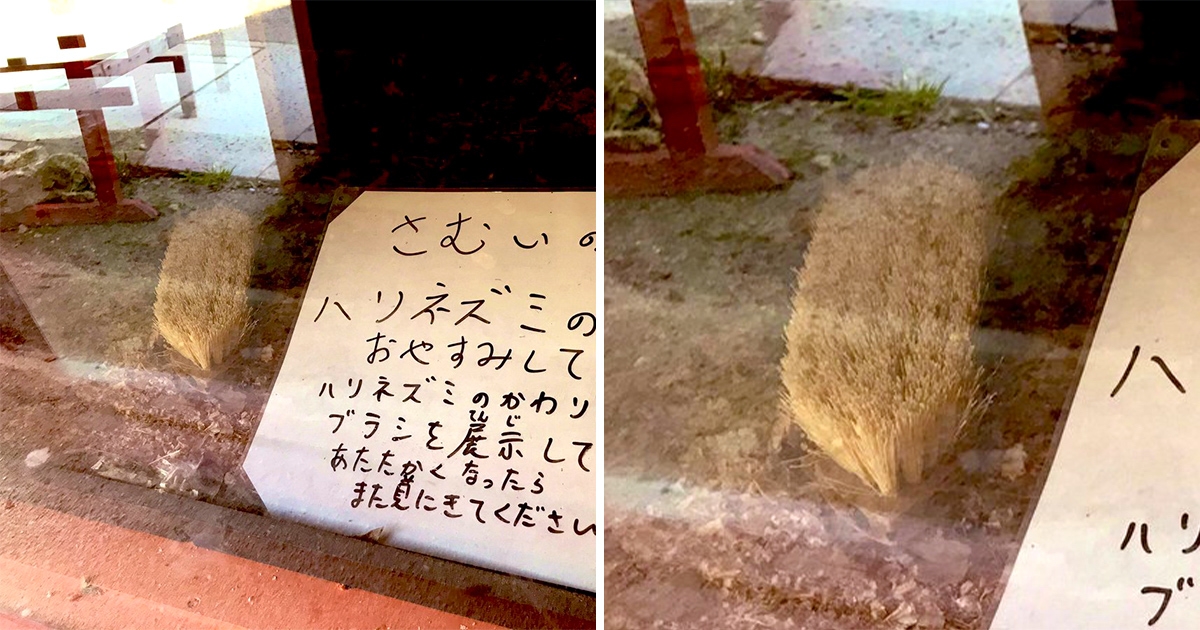 さむいの
ハリネズミの
おやすみして
ハリネズミのかわり
ブラシを展示して
てんじ
あたたかくなったら
また見にきてください
ハ
ハリ
ブ